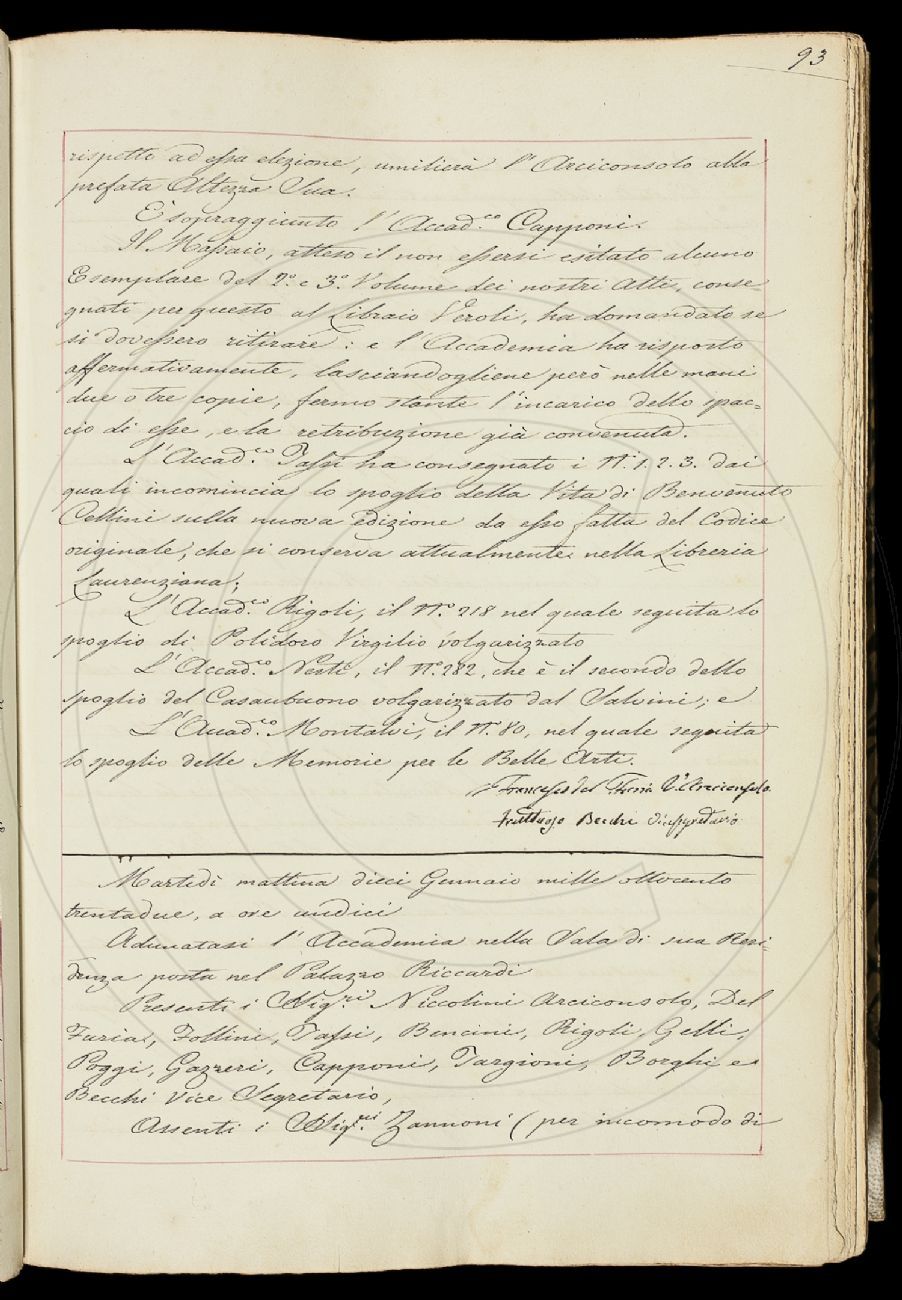 93
rispetto ad essa elezione, umilierà l'Arciconsolo alla
prefata Altezza Sua.
È sopraggiunto l'Accad.co Capponi.
Il Massaio, atteso il non essersi esitato alcuno
Esemplare del 2.o e 3.o Volume dei nostri Atti, conse=
gnati per questo al Libraio Veroli, ha domandato se
si dovessero ritirare: e l'Accademia ha risposto
affermativamente, lasciandogliene però nelle mani
due o tre copie, fermo stante l'incarico dello spac=
cio di esse, e la retribuzione già convenuta.
L'Accad.co Tassi ha consegnato i N.i 1. 2. 3. dai
quali incomincia lo spoglio della Vita di Benvenuto
Cellini sulla nuova edizione da esso fatta del Codice
originale, che si conserva attualmente nella Libreria
Laurenziana;
L'Accad.co Rigoli, il N.o 218 nel quale seguita lo
spoglio di Polidoro Virgilio volgarizzato
L'Accad.co Nesti, il N.o 282, che è il secondo dello
spoglio del Casaubuono volgarizzato dal Salvini; e
L'Accad.co Montalvi, il N.o 80, nel quale seguita
lo spoglio delle Memorie per le Belle Arti.
Francesco del Furia V. Arciconsolo
Fruttuoso Becchi Vicesegretario
Martedì mattina dieci Gennaio mille ottocento
trentadue, a ore undici
Adunatasi l'Accademia nella Sala di sua Resi=
denza posta nel Palazzo Riccardi
Presenti i Sig.ri Niccolini Arciconsolo, Del
Furia, Follini, Tassi, Bencini, Rigoli, Gelli,
Poggi, Gazzeri, Capponi, Targioni, Borghi e
Becchi Vice Segretario,
Assenti i Sig.ri Zannoni (per incomodo di